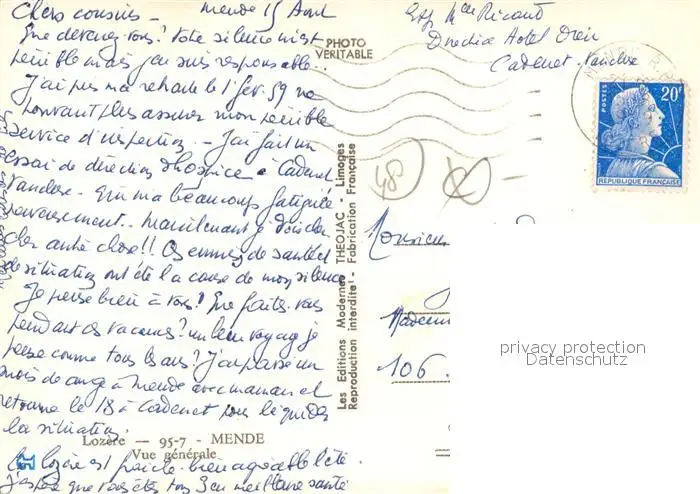 Chers cousins – Mende 15 Août
Que devenez-vous? Votre silence m'est
pénible mais j'en suis responsable...
J'ai pris ma retraite le 1 fév. 59 ne
pouvant plus assurer mon pénible
service d'inspection. – J'ai fait un
essai de direction d'hospice à Cadenet
Vaucluse. Qui m'a beaucoup fatiguée
nerveusement.. Maintenant je dois chercher
autre chose!! Ces ennuis de santé et
de situation ont été la cause de mon silence
Je pense bien à vous! Que faites-vous
pendant ces vacances? un beau voyage je
pense comme tous les ans? J'ai passé un
mois de congé à Mende avec maman et
retourne le 18 à Cadenet pour liquider
la situation.
Lozère — 95-7 - MENDE
Vue générale
La lozère est fraîche bien agréable l'été.
J'espère que vous êtes tous 3 en meilleure santé
PHOTO
VERITABLE
Les Editions Modernes THEOJAC - Limoges
Reproduction interdite - Fabrication Française
Mlle Ricard
Directrice
Cadenet Vaucluse
POSTES 20F
REPUBLIQUE FRANÇAISE
48
Monsieur
106.
privacy protection
Datenschutz